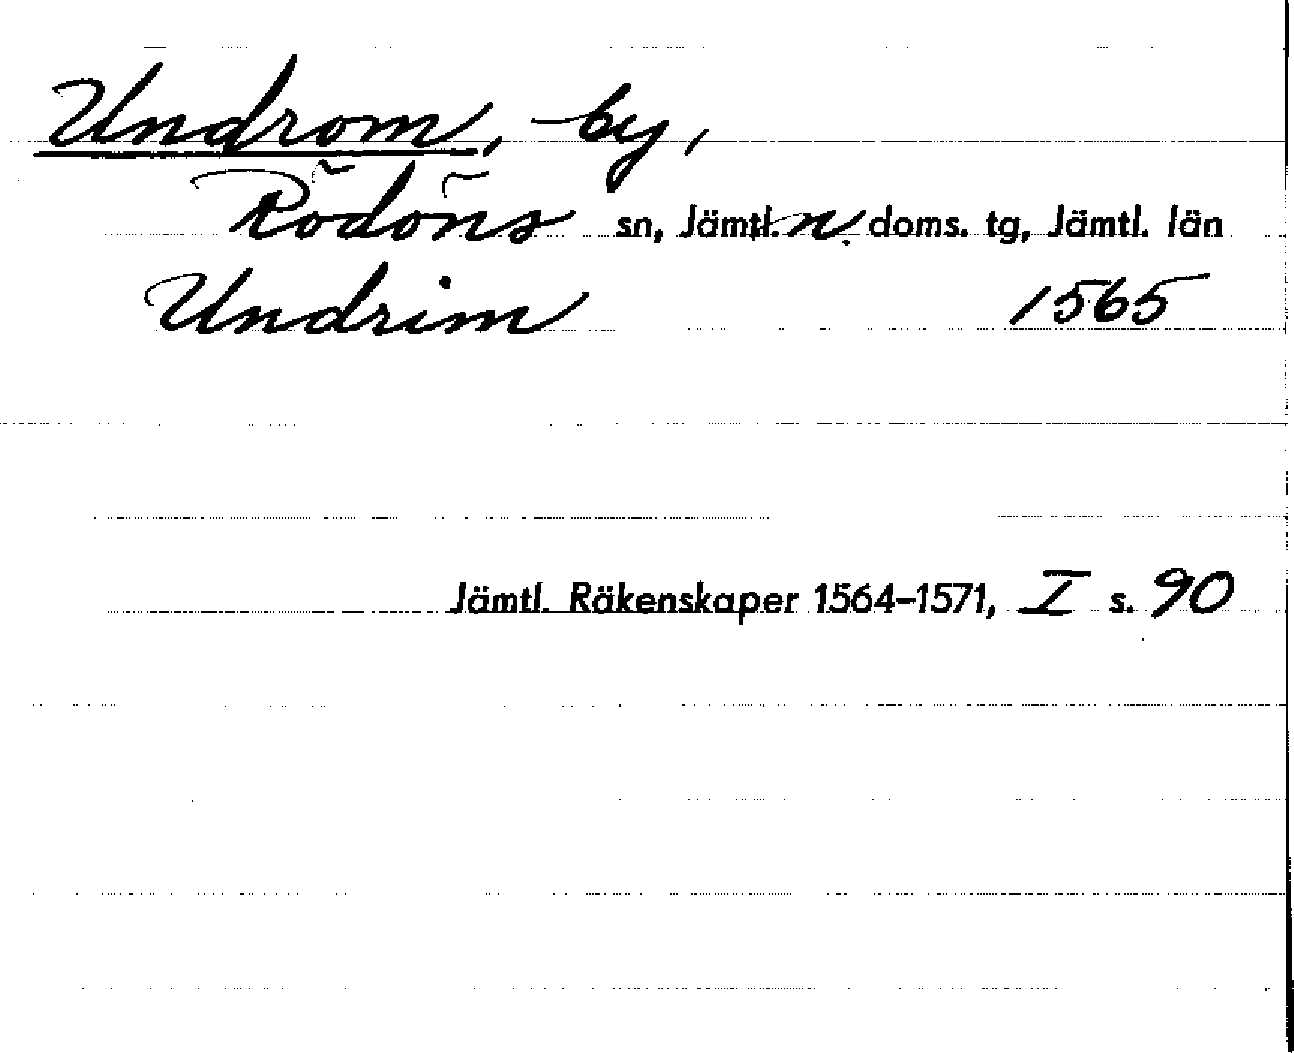 Undrom, by,
Rödöns sn, Jämtl. n. doms. tg, Jämtl. län
Undrim 1565
Jämtl. Räkenskaper 1564-1571, I s. 90